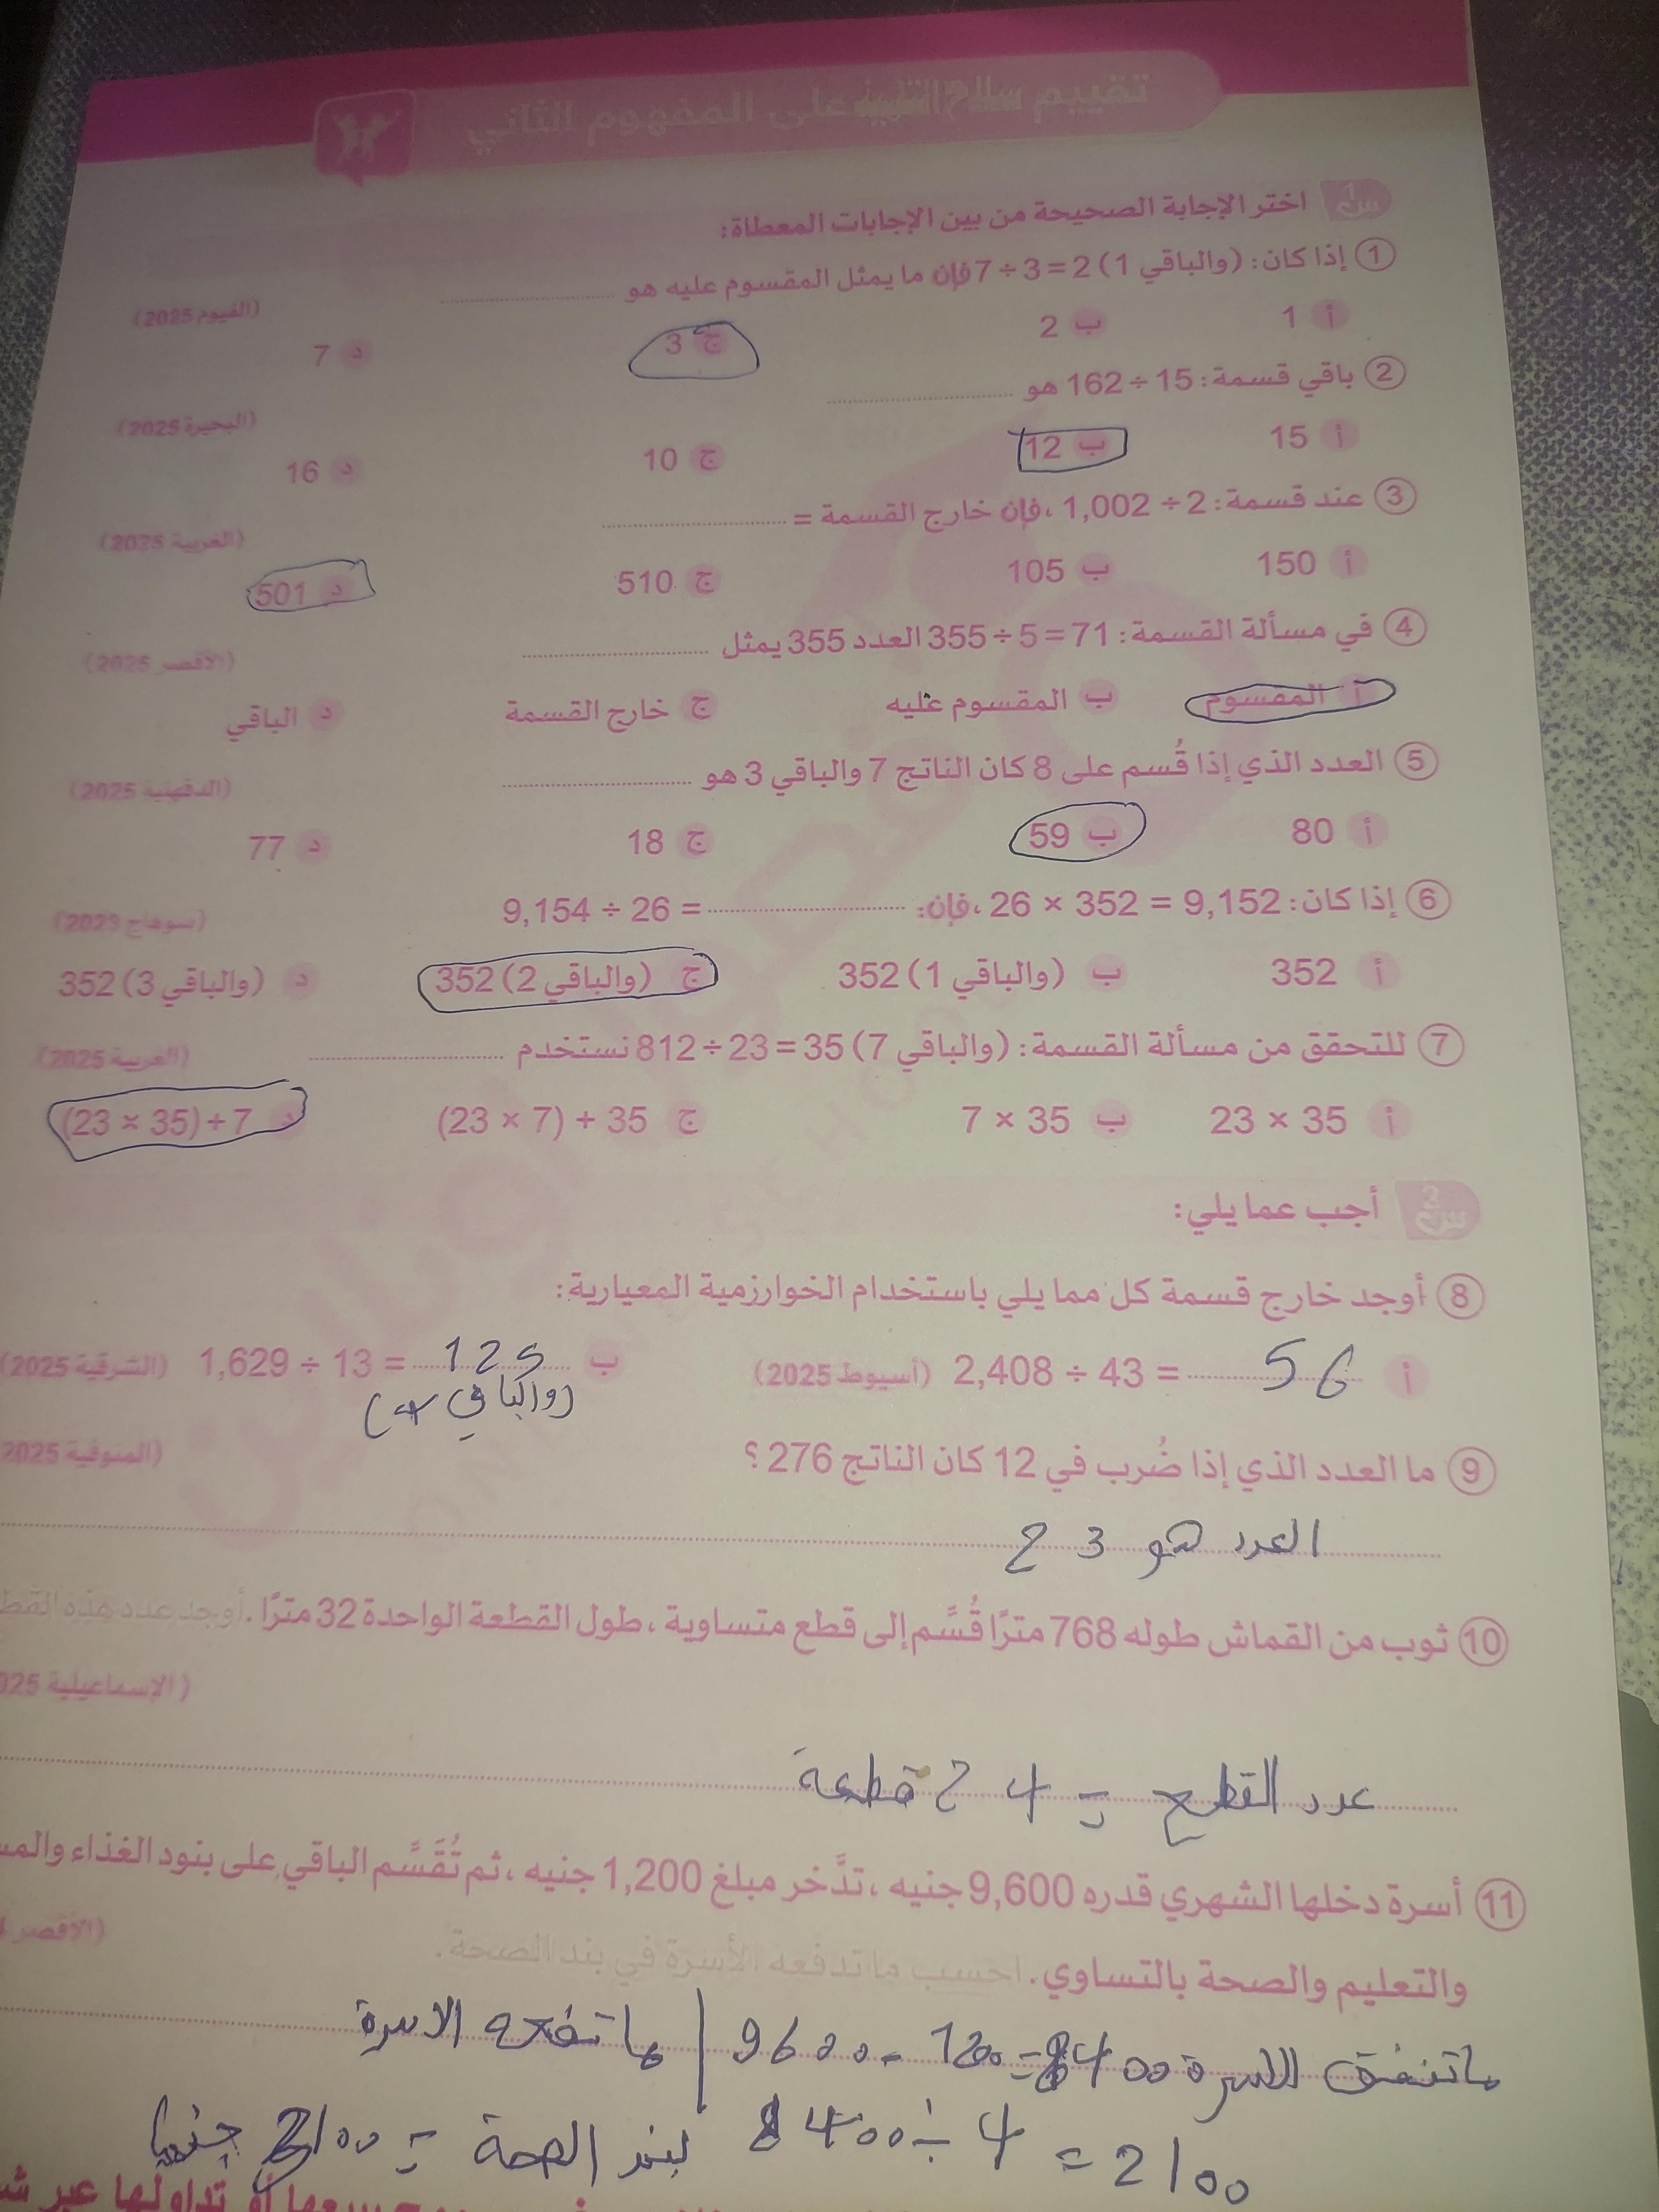 تقييم سلاح التلميذ على المفهوم الثاني
س1 اختر الإجابة الصحيحة من بين الإجابات المعطاة:
1 إذا كان: (والباقي 1) 2 = 3 ÷ 7 فإن ما يمثل المقسوم عليه هو ............ (الفيوم 2025)
أ 1 ب 2 ج 3 د 7
2 باقي قسمة: 15 ÷ 162 هو ............ (البحيرة 2025)
أ 15 ب 12 ج 10 د 16
3 عند قسمة: 2 ÷ 1,002 ، فإن خارج القسمة = ............ (الغربية 2025)
أ 150 ب 105 ج 510 د 501
4 في مسألة القسمة: 71 = 5 ÷ 355 العدد 355 يمثل ............ (الأقصر 2025)
أ المقسوم ب المقسوم عليه ج خارج القسمة د الباقي
5 العدد الذي إذا قُسم على 8 كان الناتج 7 والباقي 3 هو ............ (الدقهلية 2025)
أ 80 ب 59 ج 18 د 77
6 إذا كان: 26 × 352 = 9,152 ، فإن: ............ = 9,154 ÷ 26 (سوهاج 2023)
أ 352 ب (والباقي 1) 352 ج (والباقي 2) 352 د (والباقي 3) 352
7 للتحقق من مسألة القسمة: (والباقي 7) 35 = 23 ÷ 812 نستخدم ............ (الغربية 2025)
أ 23 × 35 ب 7 × 35 ج (23 × 7) + 35 د (23 × 35) + 7
س2 أجب عما يلي:
8 أوجد خارج قسمة كل مما يلي باستخدام الخوارزمية المعيارية:
أ 2,408 ÷ 43 = 56 (أسيوط 2025) ب 1,629 ÷ 13 = 125 (الشرقية 2025)
(والباقي 4)
9 ما العدد الذي إذا ضُرب في 12 كان الناتج 276 ؟ (المنوفية 2025
العدد هو 23
10 ثوب من القماش طوله 768 مترًا قُسِّم إلى قطع متساوية ، طول القطعة الواحدة 32 مترًا . أوجد عدد هذه القط
(الإسماعيلية 025
عدد القطع = 24 قطعة
11 أسرة دخلها الشهري قدره 9,600 جنيه ، تدَّخر مبلغ 1,200 جنيه ، ثم تُقَسَّم الباقي على بنود الغذاء والمس
والتعليم والصحة بالتساوي . احسب ما تدفعه الأسرة في بند الصحة . (الأقصر
ماتنفق الاسرة 9600 - 1200 = 8400 | ما تفعه الاسرة
لبند الصحة = 2100 جنيها 8400 ÷ 4 = 2100